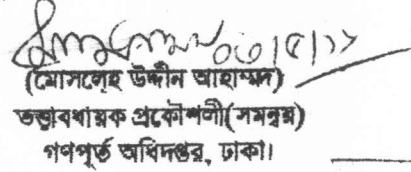 ০১/৫/১১
(মোসলেহ উদ্দীন আহাম্মদ)
তত্ত্বাবধায়ক প্রকৌশলী(সমন্বয়)
গণপূর্ত অধিদপ্তর, ঢাকা।